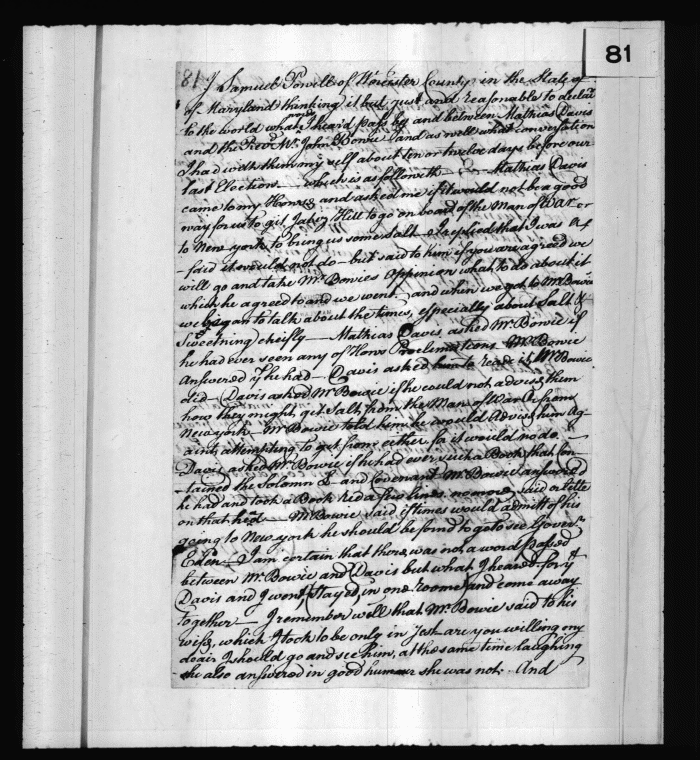 81
81 I Samuel Powill of Worcester County in the State of
of Maryland thinking it but just and reasonable to declar
to the world what I heard pass by and between Mathias Davis
and the Revd. Mr. John Bowie and as well what conversation
I had with them my self about ten or twelve days before our
last Election — which is as followeth — Mathias Davis
came to my House and asked me if it would not be a good
way for us to git Jabez Hill to go on board of the Man of War or
to New york to bring us some salt I replied that I was Af
-faid it would not do — but said to him if you are agreed we
will go and take Mr. Bowies oppinion what to do about it
which he agreed to and we went and when we got to Mr. Bowies
we began to talk about the times, especially about Salt &
Sweetning cheifly — Mathias Davis asked Mr. Bowie if
he had ever seen any of Hows Proclemations Mr. Bowie
answered yt he had — Davis asked him to read it Mr. Bowie
did — Davis asked Mr. Bowie if he could not advise them
how they might get Salt from the Man of War Or from
New york — Mr. Bowie told him he would Advise him Ag-
ainst attempting to get from either for it would no do. —
Davis asked Mr. Bowie if he had ever such a Book that con-
-tained the Solomn L— and Covenant Mr. Bowie answered
he had and took a Book red a few lines no more said a little
on that hed — Mr. Bowie said if times would admitt of his
going to New york he should be fond to go to see Governr
Eden — I am certain that there was not a word passed
between Mr. Bowie and Davis but what I heard for yt
Davis and I went, stayed, in one roome and come away
Together — I remember well that Mr. Bowie said to his
wife, which I took to be only in Jest are you willing my
deair I should go and see him, at the same time laughing
she also answered in good humer she was not. And